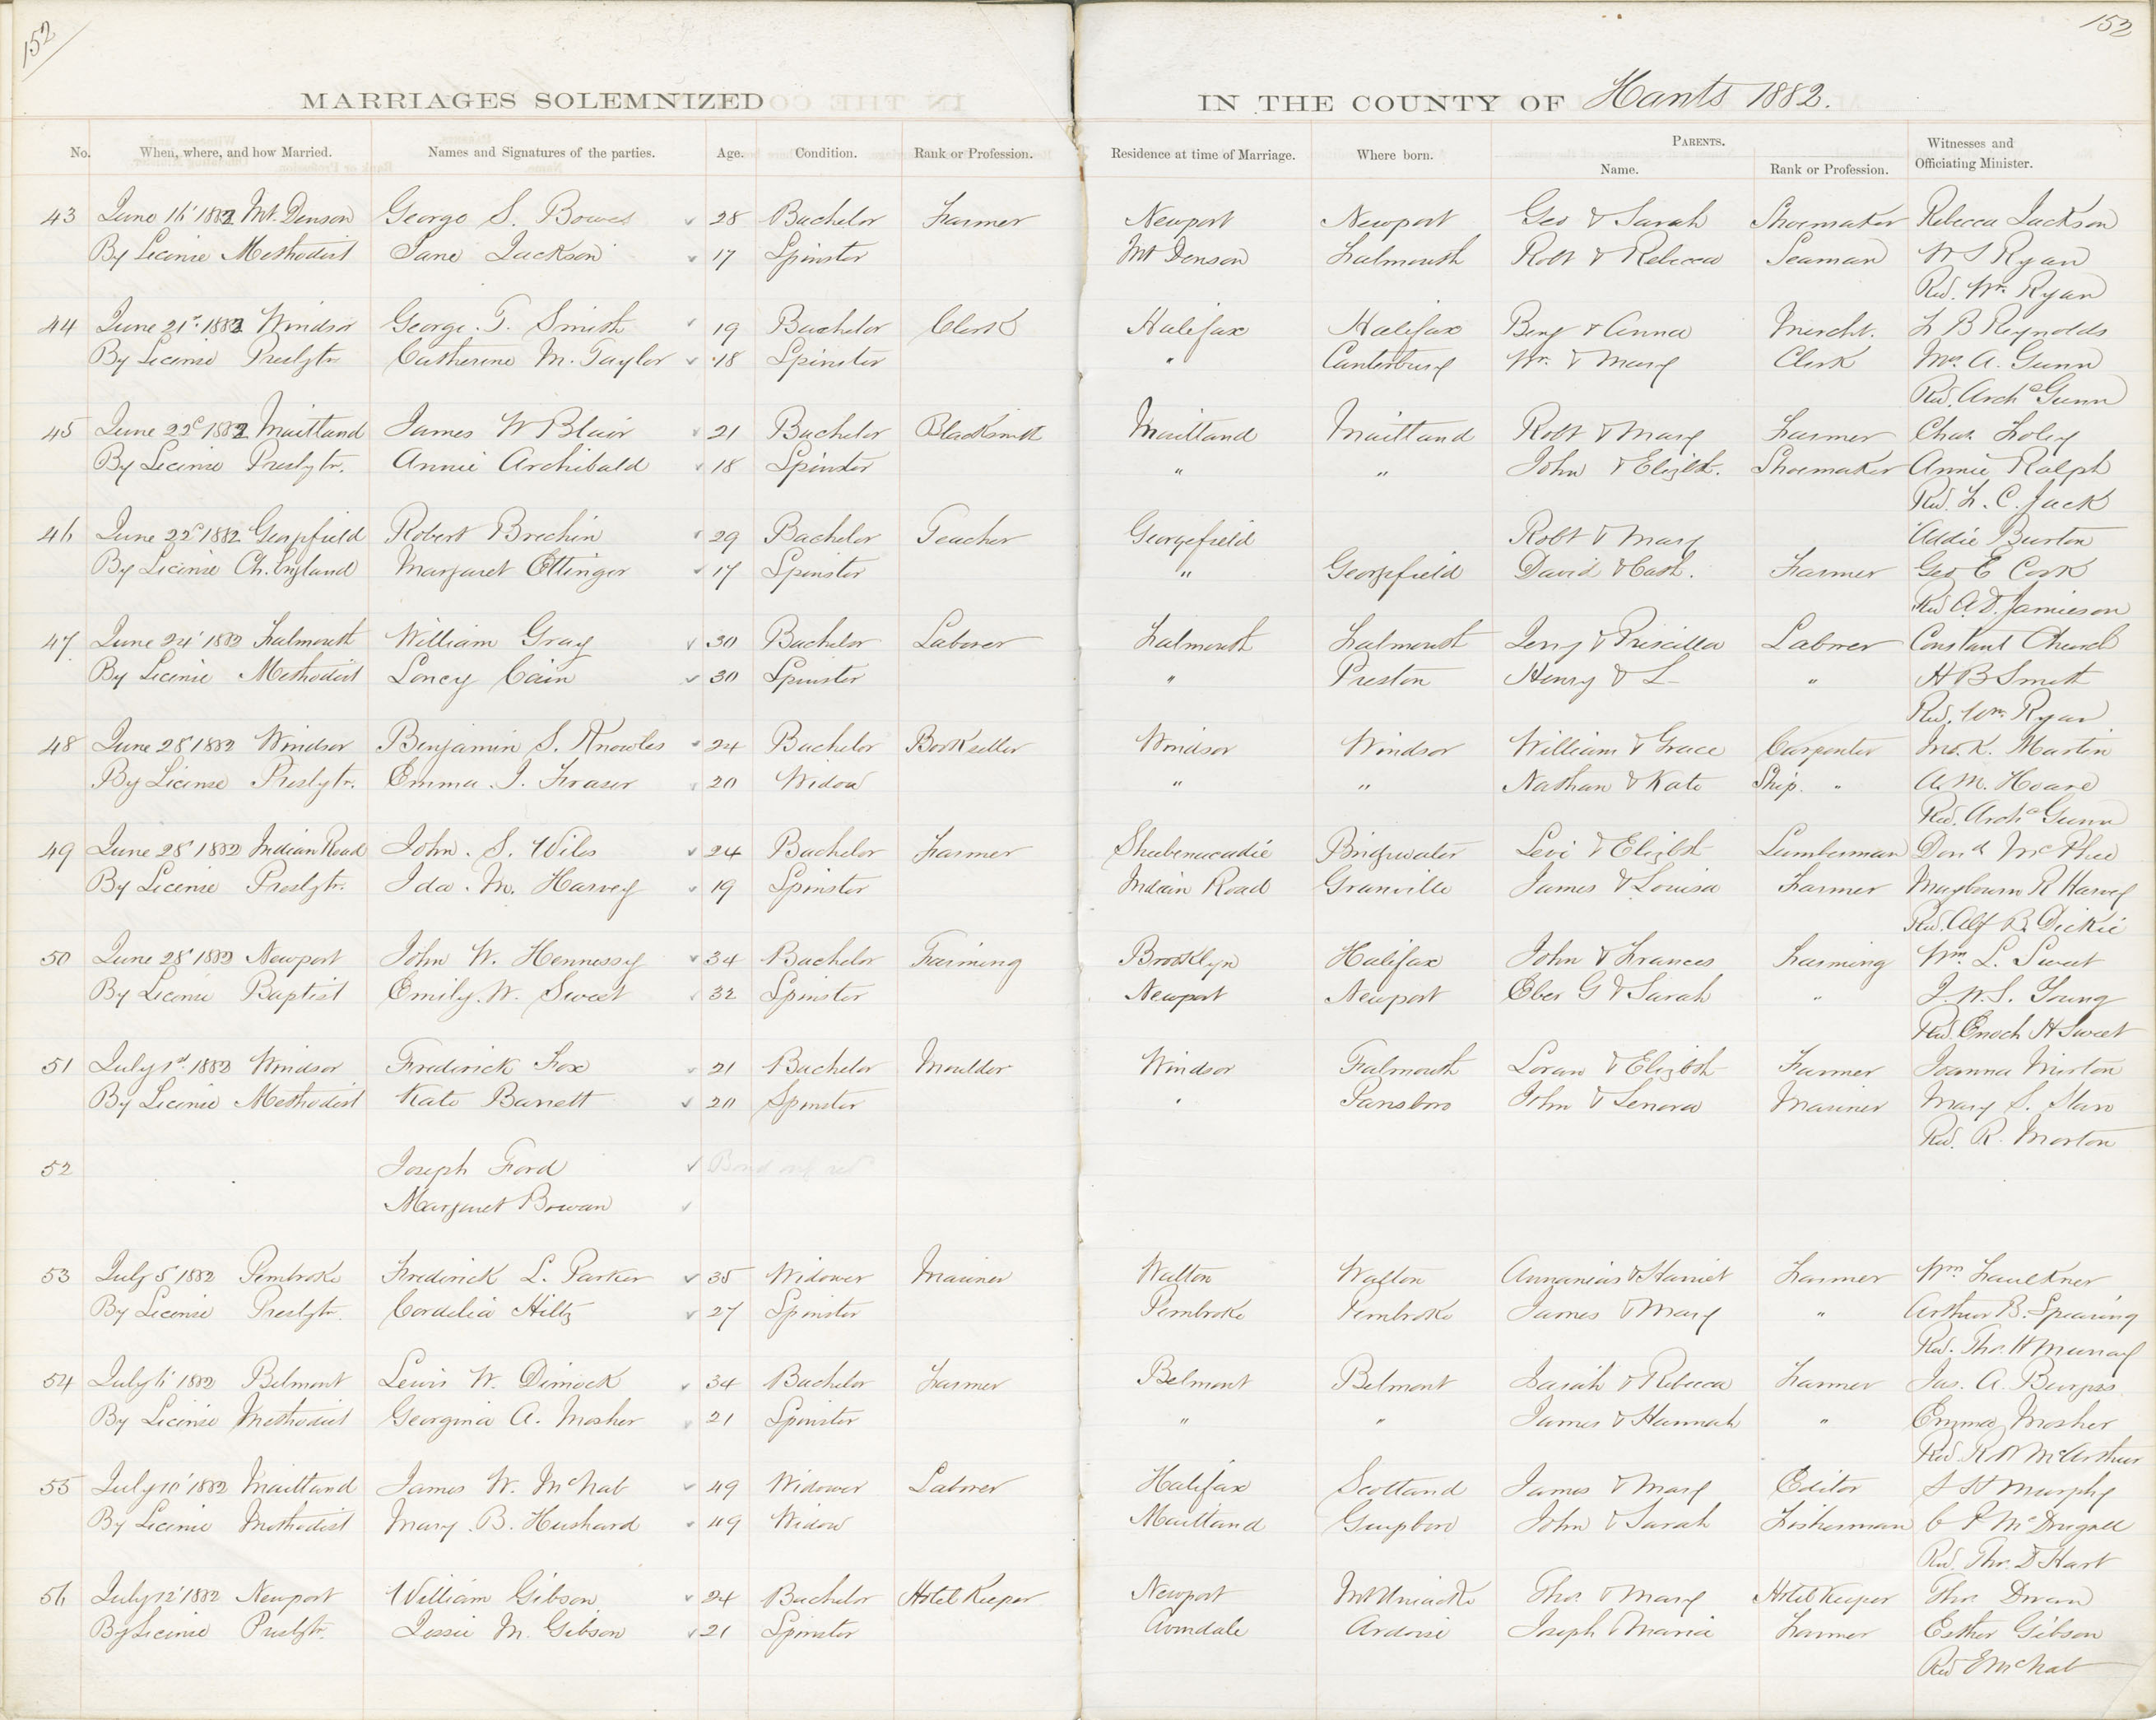 152
152
MARRIAGES SOLEMNIZED IN THE COUNTY OF Hants 1882.
No. When, where, and how Married. Names and Signatures of the parties. Age. Condition. Rank or Profession. Residence at time of Marriage. Where born. PARENTS. Name. Rank or Profession. Witnesses and Officiating Minister.
43 June 16' 1882 Mt. Denson George S. Bowes 28 Bachelor Farmer Newport Newport Geo & Sarah Shoemaker Rebecca Jackson
By License Methodist Jane Jackson 17 Spinster Mt Denson Falmouth Robt & Rebecca Seaman W S Ryan
Rev. Wm. Ryan
44 June 21st 1882 Windsor George. T. Smith 19 Bachelor Clerk Halifax Halifax Benj & Anna Mercht. F B Reynolds
By License Presbytr. Catherine M. Taylor 18 Spinster " Canterbury Wm. & Mary Clerk Mrs. A. Gunn
Rev. Archd Gunn
45 June 22d 1882 Maitland James W Blair 21 Bachelor Blacksmith Maitland Maitland Robt & Mary Farmer Chas. Foley
By License Presbytr. Annie Archibald 18 Spinster " " John & Elizbt. Shoemaker Annie Ralph
Rev. L. C. Jack
46 June 22d 1882 Georgefield Robert Brechin 29 Bachelor Teacher Georgefield Robt & Mary Addie Burton
By License Ch. England Margaret Ettinger 17 Spinster " Georgefield David & Cath. Farmer Geo E Cook
Rev A. D. Jamieson
47 June 24' 1882 Falmouth William Gray 30 Bachelor Laborer Falmouth Falmouth Jerry & Priscilla Laborer Constant Church
By License Methodist Loncy Cain 30 Spinster " Preston Henry & L- " H B Smith
Rev. Wm. Ryan
48 June 28' 1882 Windsor Benjamin S. Knowles 24 Bachelor Bookseller Windsor Windsor William & Grace Carpenter Jno. K. Martin
By License Presbytr. Emma. J. Fraser 20 Widow " " Nathan & Kate Ship. " A. M. Hoare
Rev. Archd Gunn
49 June 28' 1882 Indian Road John. S. Wiles 24 Bachelor Farmer Shubenacadie Bridgwater Levi & Elizbt Lumberman Dond McPhee
By License Presbytr. Ida. M. Harvey 19 Spinster Indain Road Granville James & Louisa Farmer Maybourn R Harvey
Rev. Alf B. Dickie
50 June 28' 1882 Newport John W. Hennessy 34 Bachelor Farming Brooklyn Halifax John & Frances Farming Wm. L. Sweet
By License Baptist Emily. W. Sweet 32 Spinster Newport Newport Eber G & Sarah " J. W. S. Young
Rev. Enoch H Sweet
51 July 1st 1882 Windsor Frederick Fox 21 Bachelor Moulder Windsor Falmouth Loran & Elizbth Farmer Joanna Morton
By License Methodist Kate Barrett 20 Spinster " Parrsboro John & Lenora Mariner Mary S.
Rev. R. Morton
52 Joseph Ford
Margaret Bowan
53 July 5' 1882 Pembroke Frederick L. Parker 35 Widower Mariner Walton Walton Annanias & Harriet Farmer Wm Faulkner
By License Presbytr. Cordelia Hiltz 27 Spinster Pembroke Pembroke James & Mary " Arthur B. Spearing
Rev. Thos. H Murray
54 July 6' 1882 Belmont Lewis W. Dimock 34 Bachelor Farmer Belmont Belmont Isaiah & Rebecca Farmer Jas. A. Burgess
By License Methodist Georginia A. Mosher 21 Spinster " " James & Hannah " Emma Mosher
Rev. R W McArthur
55 July 10' 1882 Maitland James W. McNab 49 Widower Laborer Halifax Scotland James & Mary Editor S H Murphy
By License Methodist Mary. B. Hushard 49 Widow Maitland Guysboro John & Sarah Fisherman C P McDougall
Rev. Thos. D Hart
56 July 12' 1882 Newport William Gibson 24 Bachelor Hotel Keeper Newport Mt Uniacke Thos. & Mary Hotel Keeper Thos.
By License Presbytr. Jessie M. Gibson 21 Spinster Avondale Ardoise Joseph & Maria Farmer Esther Gibson
Rev McNab